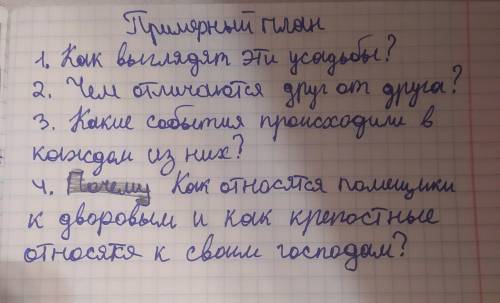 Примерный план
1. Как выглядят эти усадьбы?
2. Чем отличаются друг от друга?
3. Какие события происходили в
каждом из них?
4. Почему Как относятся помещики
к дворовым и как крепостные
относятся к своим господам?